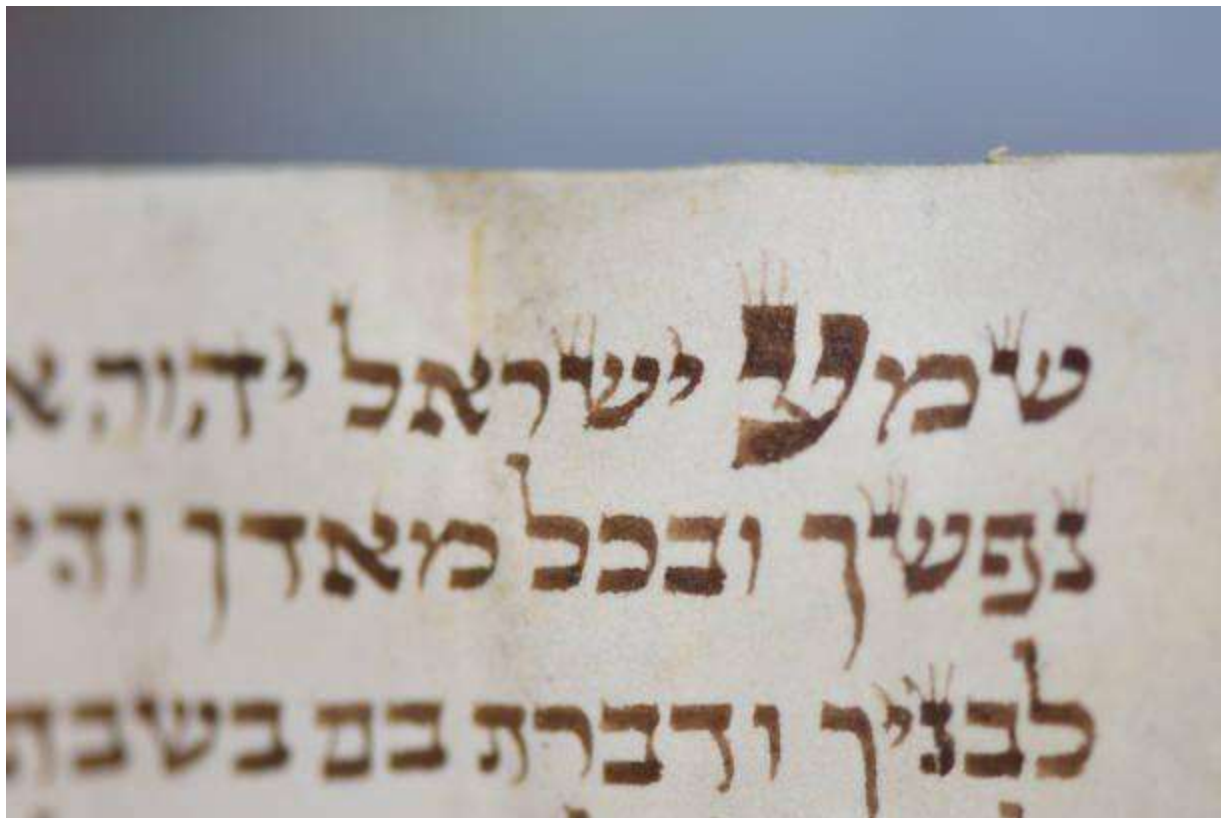 שמע ישראל יהוה א
נפשך ובכל מאדך והי
לבניך ודברת בם בשבת